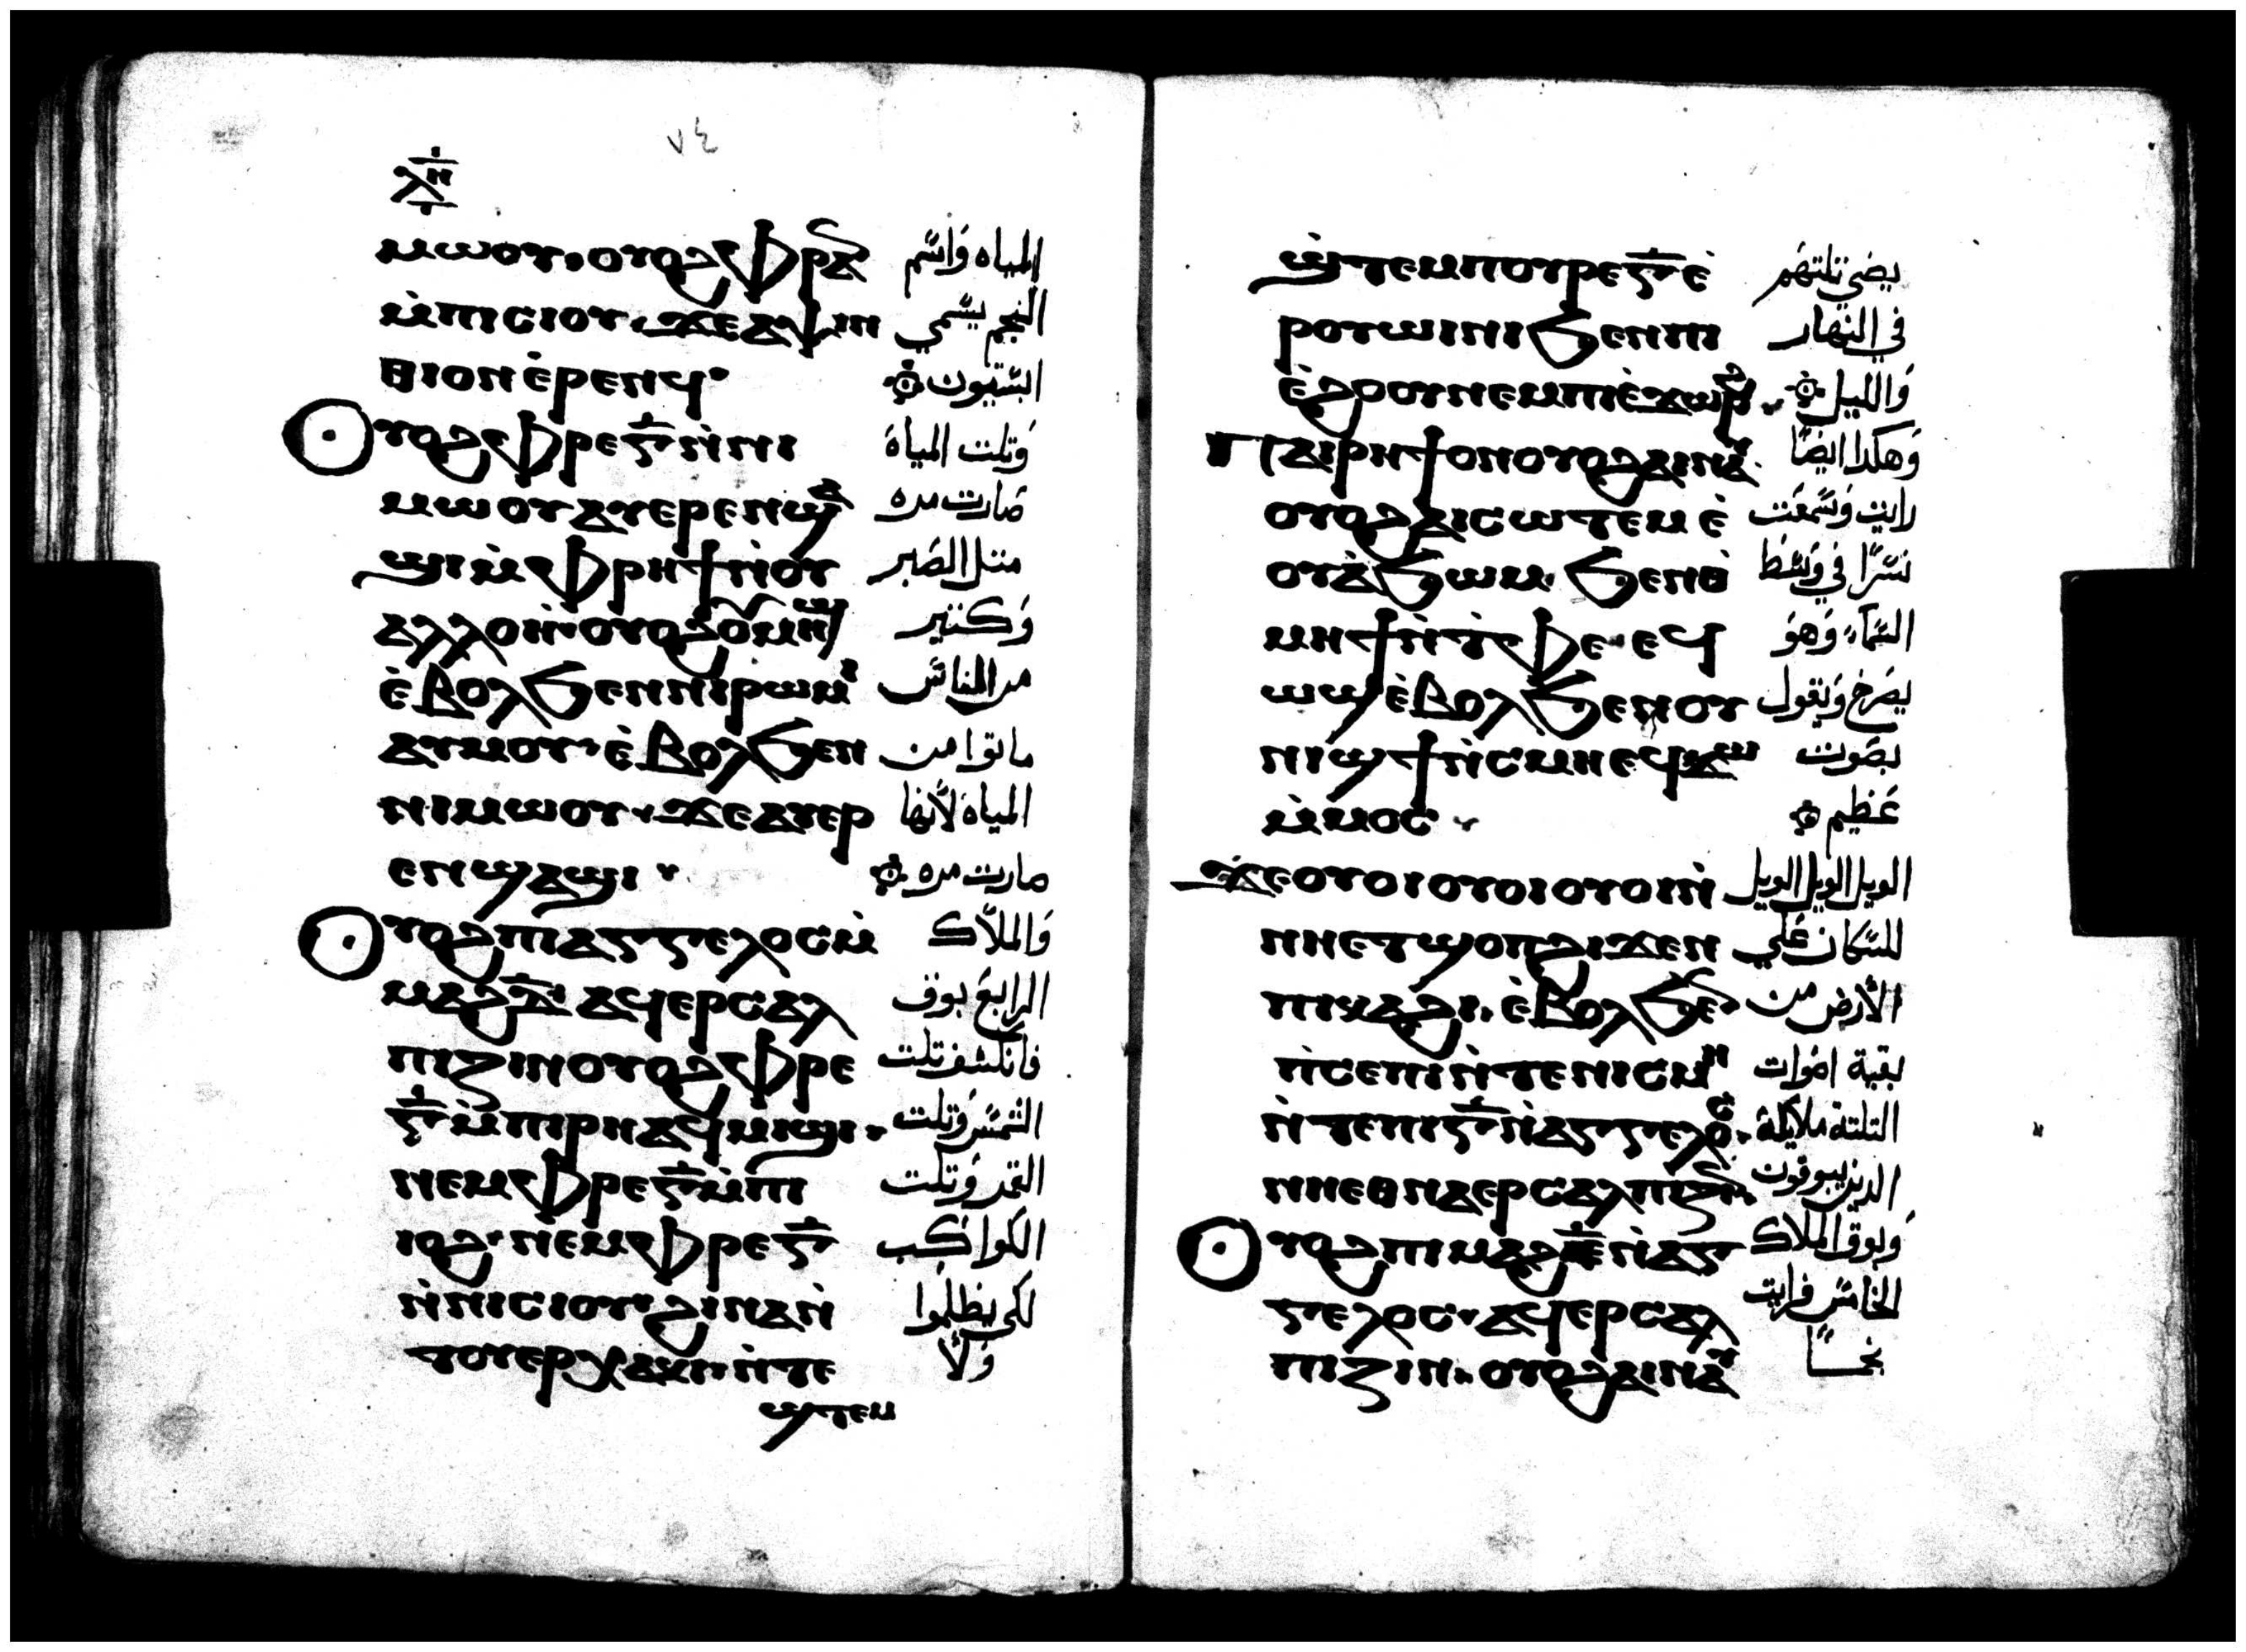 ٧٤
ⲗⲏ
ⲙⲱⲟⲩ. ⲟⲩⲟϩ ⲫⲣⲁ المياه وَاسَّم
ⲙ̀ⲡⲓⲥⲓⲟⲩ. ϫⲉ ⲁⲯⲓⲛ النجم يسَّمي
ⲑⲓⲟⲛ ⲉ̀ⲣⲉⲛϥ البستيون
ⲟⲩⲟϩ ⲫⲣⲉⲅ̅ ⲛ̀ⲛⲓ وَتلت المياة
ⲙⲱⲟⲩ ⲁⲩⲉⲣⲉⲛϣⲁ صَارت مره
ϣⲓ ⲙ̀ⲫⲣⲏϯ ⲛ̀ⲟⲩ متل الصَبر
ⲁⲗⲗⲟⲏ. ⲟⲩⲟϩ ⲟⲩⲙⲏϣ وَكتير
ⲉ̀ⲃⲟⲗ ϧⲉⲛ ⲛⲓⲣⲱⲙⲓ من الناسَ
ⲁⲩⲙⲟⲩ. ⲉ̀ⲃⲟⲗ ϧⲉⲛ ماتوا من
ⲛⲓⲙⲱⲟⲩ. ϫⲉ ⲁⲩⲉⲣ المياه لأنها
ⲉⲛϣⲁϣⲓ صارت مره
ⲟⲩⲟϩ ⲡⲓⲁⲅⲅⲉⲗⲟⲥ ⲙ̀ وَالملاَّك
ⲙⲁϩⲇ̅ ⲁϥⲉⲣⲥⲁⲗ الرابعَ بوق
ⲡⲓⲍⲓⲛ ⲟⲩⲟϩ ⲫⲣⲉ فانكشف تلت
ⲅ̅ ⲙ̀ⲡⲓⲣⲏ ⲁϥⲙⲓϣⲓ. الشمسَ وَتلت
ⲛⲉⲙ ⲫⲣⲉⲅ̅ ⲙ̀ⲡⲓ القمر وَتلت
ⲓⲟϩ. ⲛⲉⲙ ⲫⲣⲉⲅ̅ الكوَاكب
ⲛ̀ⲛⲓⲥⲓⲟⲩ. ϩⲓⲛⲁ ⲛ̀ لكي يظلمُوا
ⲧⲟⲩⲉⲣⲭⲁⲕⲓ. ⲛ̀ⲧⲉ وَلأ
ϣⲧⲉⲙ
ϣ̀ⲧⲉⲙ ⲡⲟⲩⲣⲉⲅ̅ ⲉ̀ يضي تلتهَم
ⲣⲟⲩⲱⲓⲛⲓ ϧⲉⲛ ⲡⲓ في النهار
ⲉ̀ϩⲟⲟⲩ ⲛⲉⲙ ⲡⲓⲉ̀ϫⲱⲣϩ. وَالليل
ⲡⲁⲓⲣⲏϯ ⲟⲛ ⲟⲩⲟϩ ⲁⲓⲛⲁⲩ وَهكدا ايضًا
ⲟⲩⲟϩ ⲁⲓⲥⲱⲧⲉⲙ ⲉ̀ رايت وَسَّمعَت
ⲟⲩⲁ̀ϧⲱⲙ. ϧⲉⲛ ⲑ نسَّرًا في وَسَّط
ⲙⲏϯ ⲛ̀ⲧ̀ⲫⲉ. ⲉϥ السَّمآء وَهوَ
ⲱϣ ⲉ̀ⲃⲟⲗ ϧⲉⲛ ⲟⲩ يصَرخ وَيقول
ⲛⲓϣϯ ⲛ̀ⲥ̀ⲙⲏ ⲉϥϫⲱ بصَوت
ⲙ̀ⲙⲟⲥ عَظيم
ϫⲉ ⲟⲩⲟⲓ ⲟⲩⲟⲓ ⲟⲩⲟⲓ ⲛ̀ الويل الويل الويل
ⲛⲏⲉⲧϣⲟⲡ ϩⲓϫⲉⲛ للسَّكان عَلي
ⲡⲓⲕⲁϩⲓ. ⲉ̀ⲃⲟⲗ ϧⲉⲛ الأرض من
ⲛ̀ⲥⲉⲡⲓ ⲛ̀ⲧⲉ ⲛⲓⲥⲙⲏ بقية اصَوات
ⲛ̀ⲧⲉ ⲡⲓⲅ̅ ⲛ̀ⲁⲅⲅⲉⲗⲟⲥ. التلتة ملايكة
ⲛⲏⲉⲑⲛⲁⲉⲣⲥⲁⲗⲡⲓⲍⲓⲛ الدين يبوقون
ⲟⲩⲟϩ ⲡⲓⲙⲁϩⲉ̅ ⲛ̀ⲁⲅ وَبوق الملاك
ⲅⲉⲗⲟⲥ. ⲁϥⲉⲣⲥⲁⲗ الخامسَ فرايت
ⲡⲓⲍⲓⲛ. ⲟⲩⲟϩ ⲁⲓⲛⲁⲩ نجمــًا